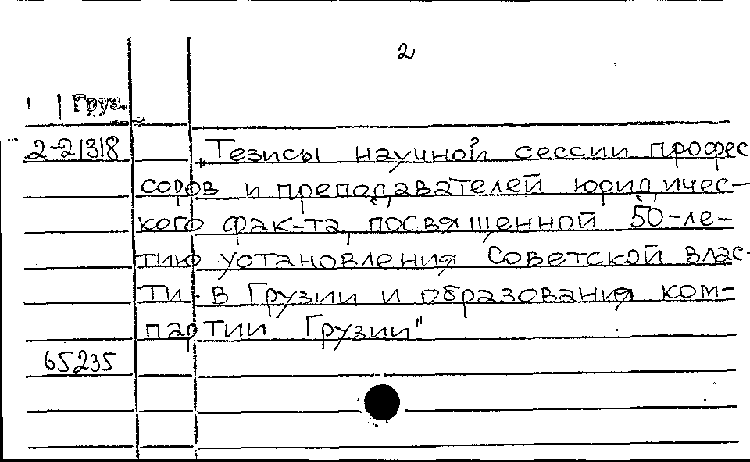 2
Груз.
2-21318 „Тезисы научной сессии профес
соров и преподавателей юридичес-
кого фак-та, посвященной 50-ле-
тию установления Советской влас-
ти в Грузии и образования ком-
партии Грузии"
65235